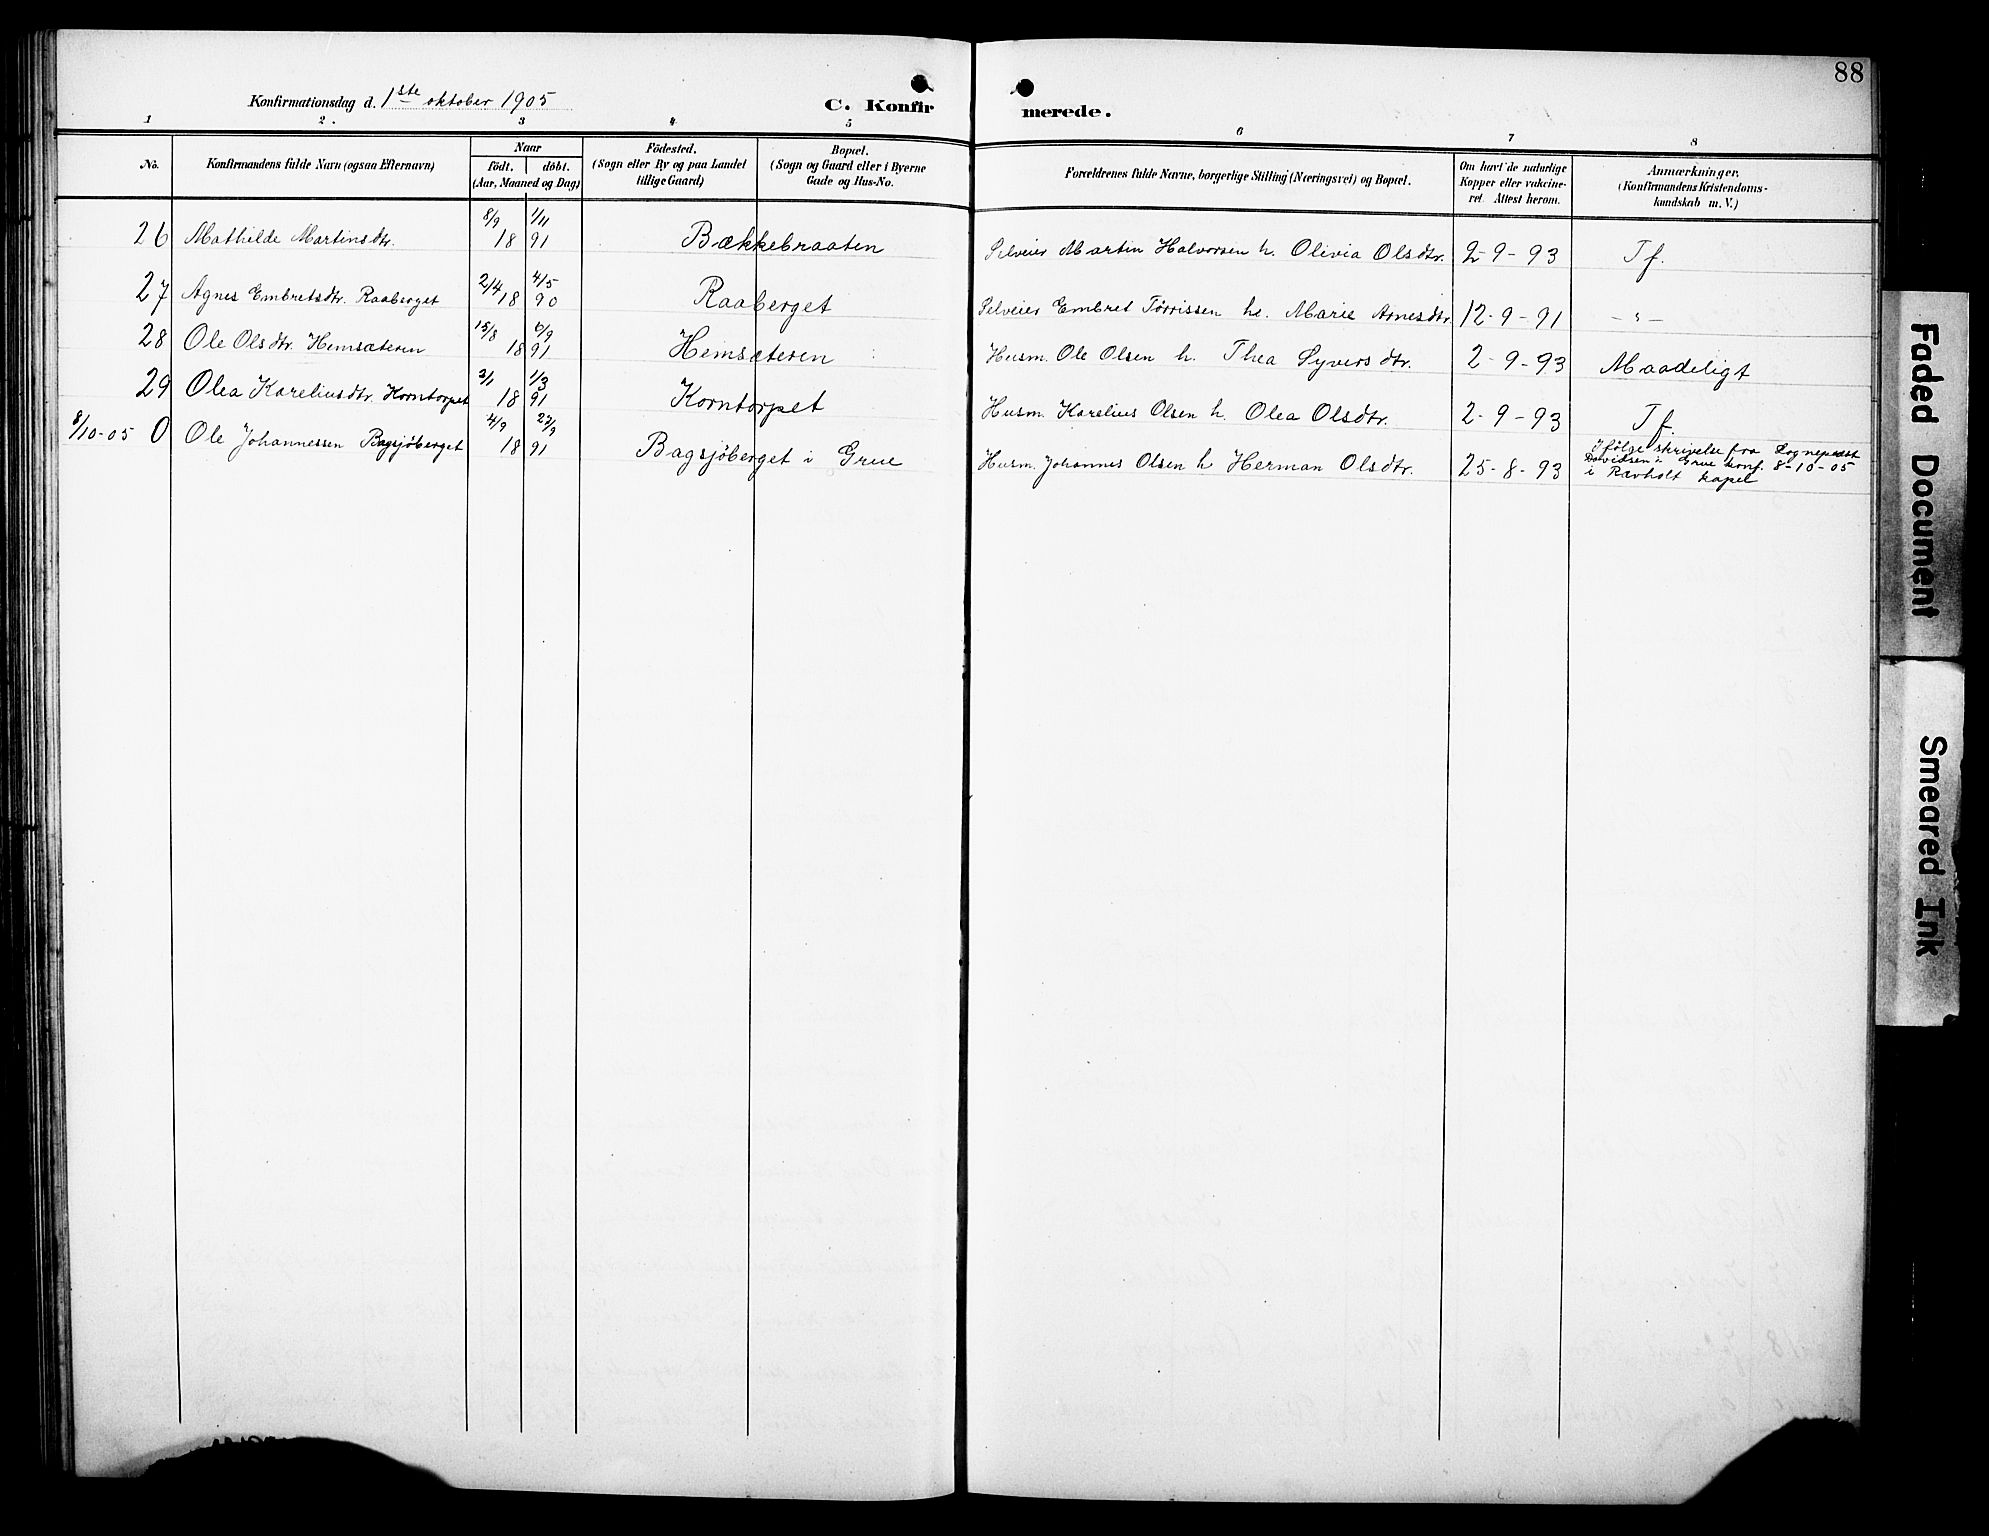 88
Konfirmationsdag d. 1ste oktober 1905 C. Konfirmerede.
1 2. 3 4 5 6 7 8
No. Konfirmandens fulde Navn (ogsaa Efternavn) Naar födt. döbt. (Aar, Maaned og Dag) Födested. (Sogn eller By og paa Landet tillige Gaard) Bopæl. (Sogn og Gaard eller i Byerne Gade og Hus-No. Forældrenes fulde Navne, borgerlige Stilling (Næringsvei) og Bopæl. Om havt de naturlige Kopper eller vakcineret. Attest herom. Anmærkninger. (Konfirmandens Kristendomskundskab m. V.)
26 Mathilde Martinsdtr. 8/9 1/11 18 91 Bækkebraaten Selveier Martin Halvorsen h. Olivia Olsdtr. 2-9-93 Tf.
27 Agnes Embretsdtr. Raaberget 2/4 4/5 18 90 Raaberget Selveier Embret Törrissen h. Marie Arnesdtr. 12-9-91 - " -
28 Ole Olsdtr. Hemsæteren 15/8 6/9 18 91 Hemsæteren Husm. Ole Olsen h. Thea Syversdtr. 2-9-93 Maadeligt
29 Olea Kareliusdtr. Korntorpet 2/1 1/3 18 91 Korntorpet Husm. Karelius Olsen h. Olea Olsdtr. 2-9-93 Tf.
8/10-05 0 Ole Johannessen Bagsjöberget 4/9 27/9 18 91 Bagsjöberget i Grue Husm. Johannes Olsen h Herman Olsdtr. 25-8-93 Ifölge skrivelse fra Sogneprest
Davidsen i Grue konf. 8-10-05
i Rævholt kapel
Faded Document
Smeared Ink